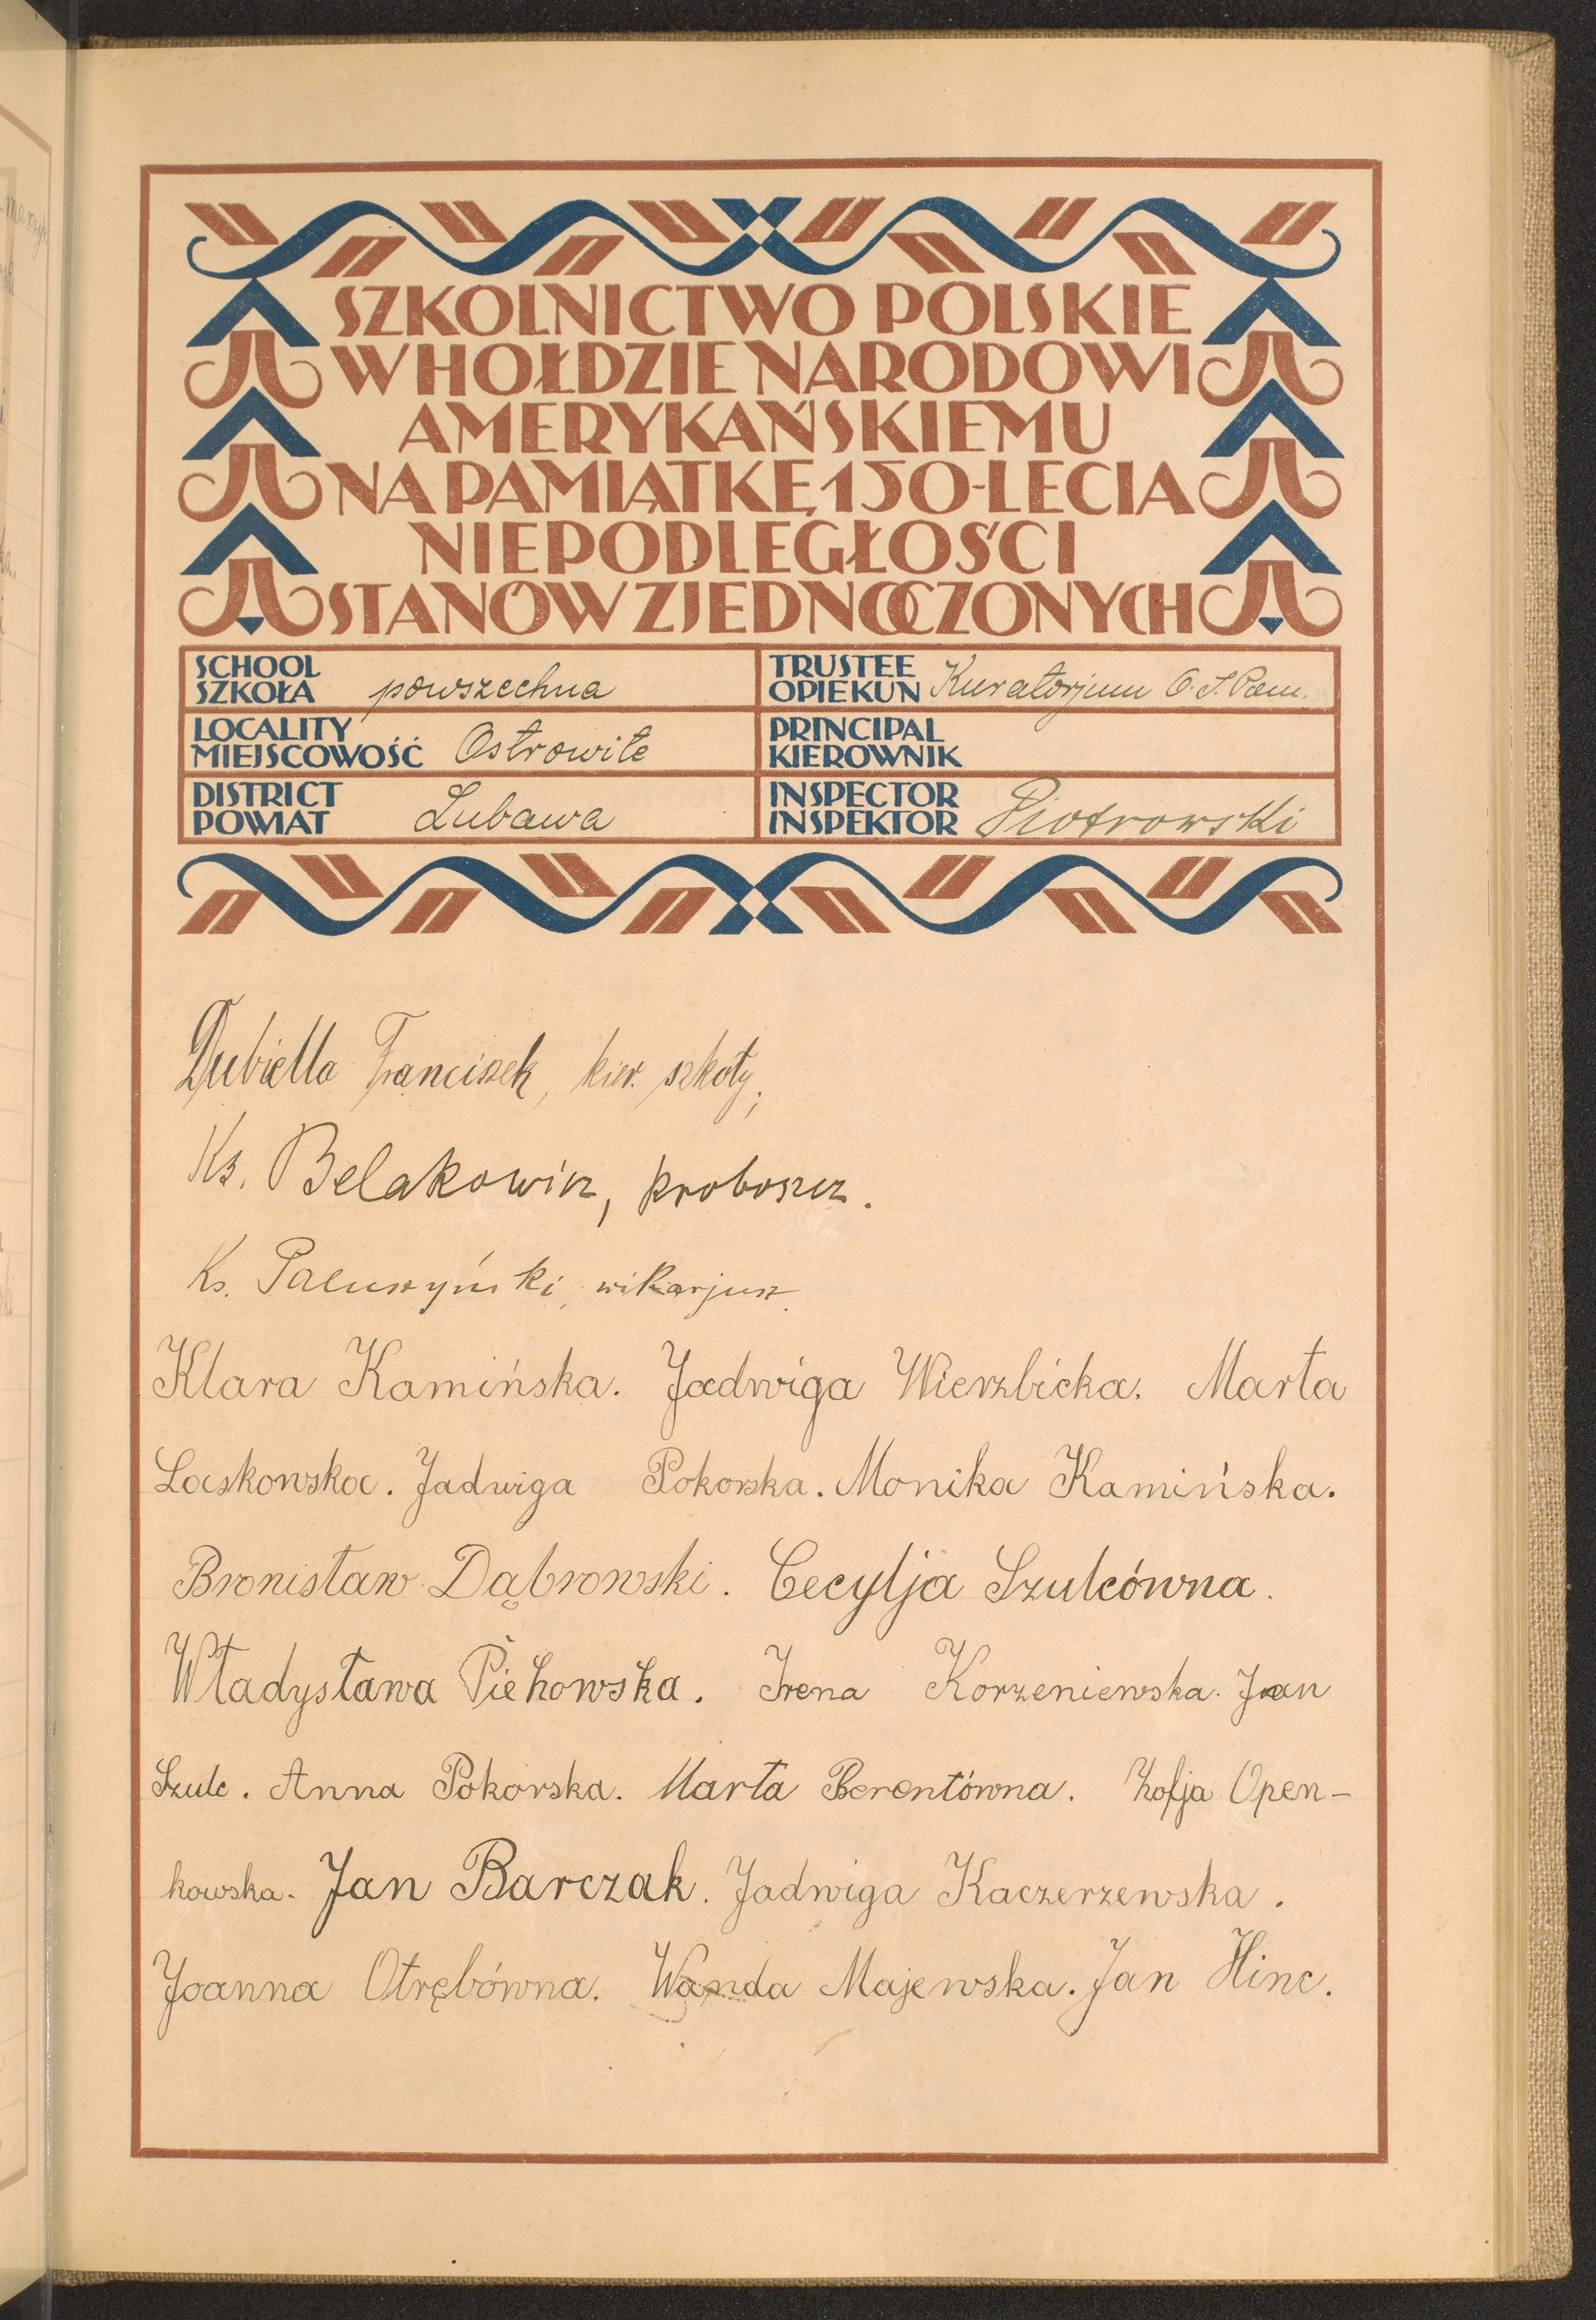 SZKOLNICTWO POLSKIE
W HOŁDZIE NARODOWI
AMERYKAŃSKIEMU
NA PAMIĄTKĘ 150-LECIA
NIEPODLEGŁOŚCI
STANÓW ZJEDNOCZONYCH
SCHOOL
SZKOŁA powszechna
TRUSTEE
OPIEKUN Kuratorjum O. S. Pom.
LOCALITY
MIEJSCOWOŚĆ Ostrowite
PRINCIPAL
KIEROWNIK
DISTRICT
POWIAT Lubawa
INSPECTOR
INSPEKTOR Piotrowski
Dubiella Franciszek, kier. szkoły;
Ks. Belakowicz, proboszcz.
Ks. Paluszyński, wikarjusz.
Klara Kamińska. Jadwiga Wierzbicka. Marta
Laskowska. Jadwiga Pokorska. Monika Kamińska.
Bronisław Dąbrowski. Cecylja Szulcówna.
Władysława Piehowska. Irena Korzeniewska. Jan
Szulc. Anna Pokorska. Marta Berentówna. Zofja Open-
kowska. Jan Barczak. Jadwiga Kaczerzewska.
Joanna Otrębówna. Wanda Majewska. Jan Hinc.